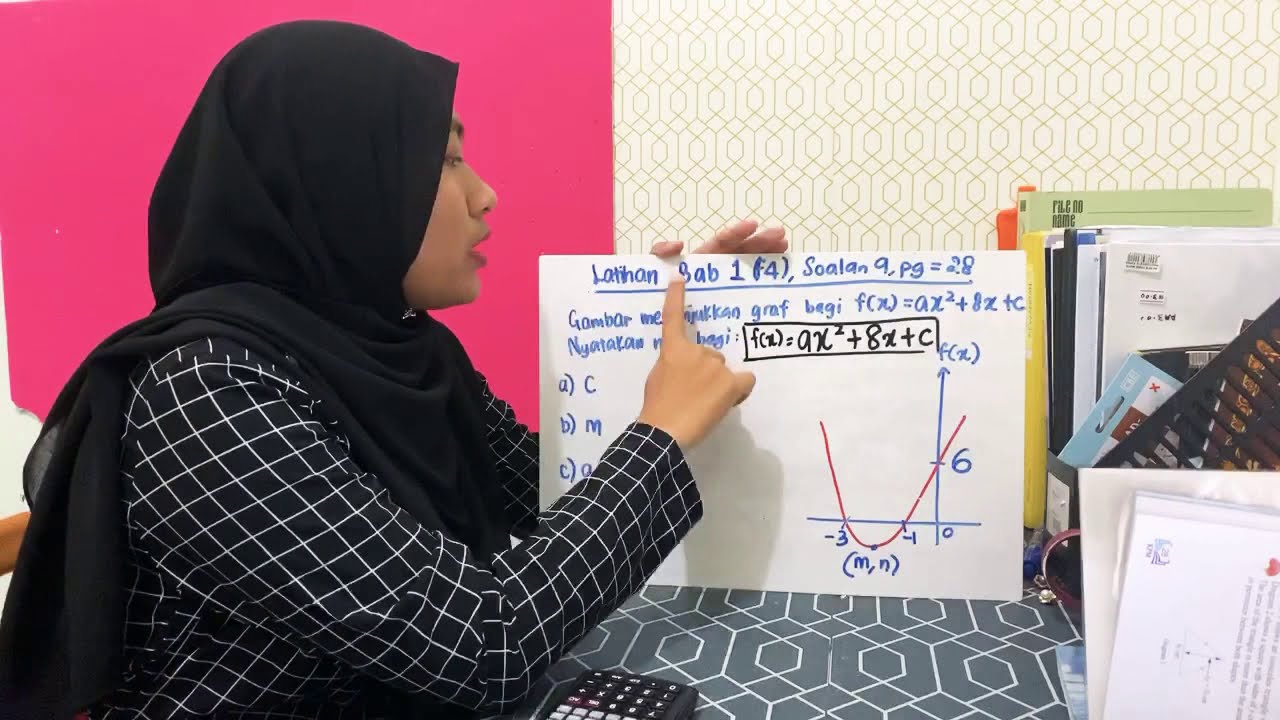 Latihan Bab 1 (F4), Soalan 9, pg = 28
Gambar menunjukkan graf bagi f(x) = ax² + 8x + c
Nyatakan bagi :
f(x) = ax² + 8x + c
a) c
b) m
c) a
f(x)
6
-3
-1
0
(m, n)
FILE NO
NAME